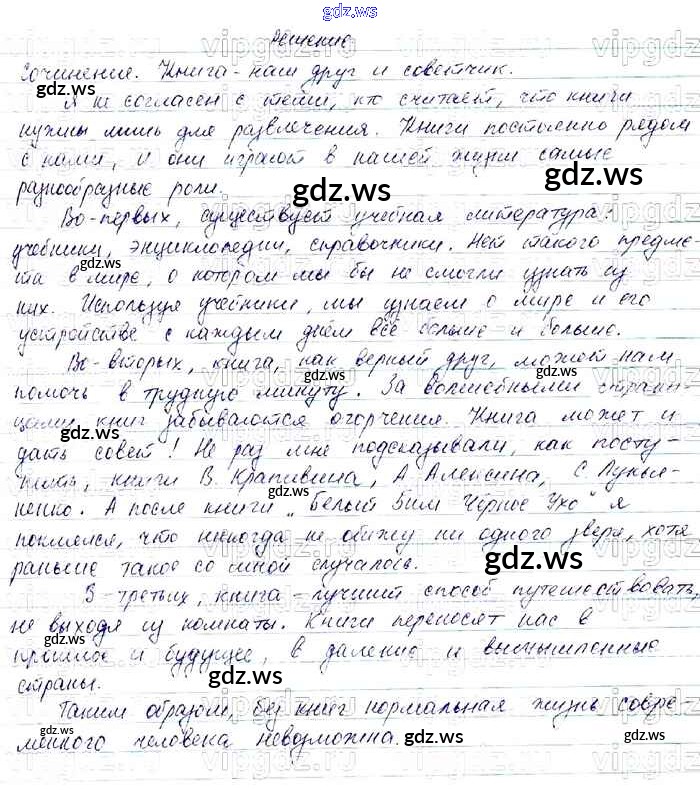 gdz.ws
Решение
Сочинение. Книга - наш друг и советчик.
Я не согласен с теми, кто считает, что книги
нужны лишь для развлечения. Книги постоянно рядом
с нами, и они играют в нашей жизни самые
разнообразные роли.
Во-первых, существует учебная литература:
учебники, энциклопедии, справочники. Нет такого предме-
та в мире, о котором мы бы не смогли узнать из
них. Используя учебники, мы узнаем о мире и его
устройстве с каждым днём всё больше и больше.
Во-вторых, книга, как верный друг, может нам
помочь в трудную минуту. За волшебными страни-
цами книг забываются огорчения. Книга может и
дать совет! Не раз мне подсказывали, как посту-
пить, книги В. Крапивина, А. Алексина, С. Лукья-
ненко. А после книги "Белый Бим Чёрное Ухо" я
поклялся, что никогда не обижу ни одного зверя, хотя
раньше такое со мной случалось.
В-третьих, книга - лучший способ путешествовать,
не выходя из комнаты. Книги переносят нас в
прошлое и будущее, в далекие и вымышленные
страны.
Таким образом, без книг нормальная жизнь совре-
менного человека невозможна.